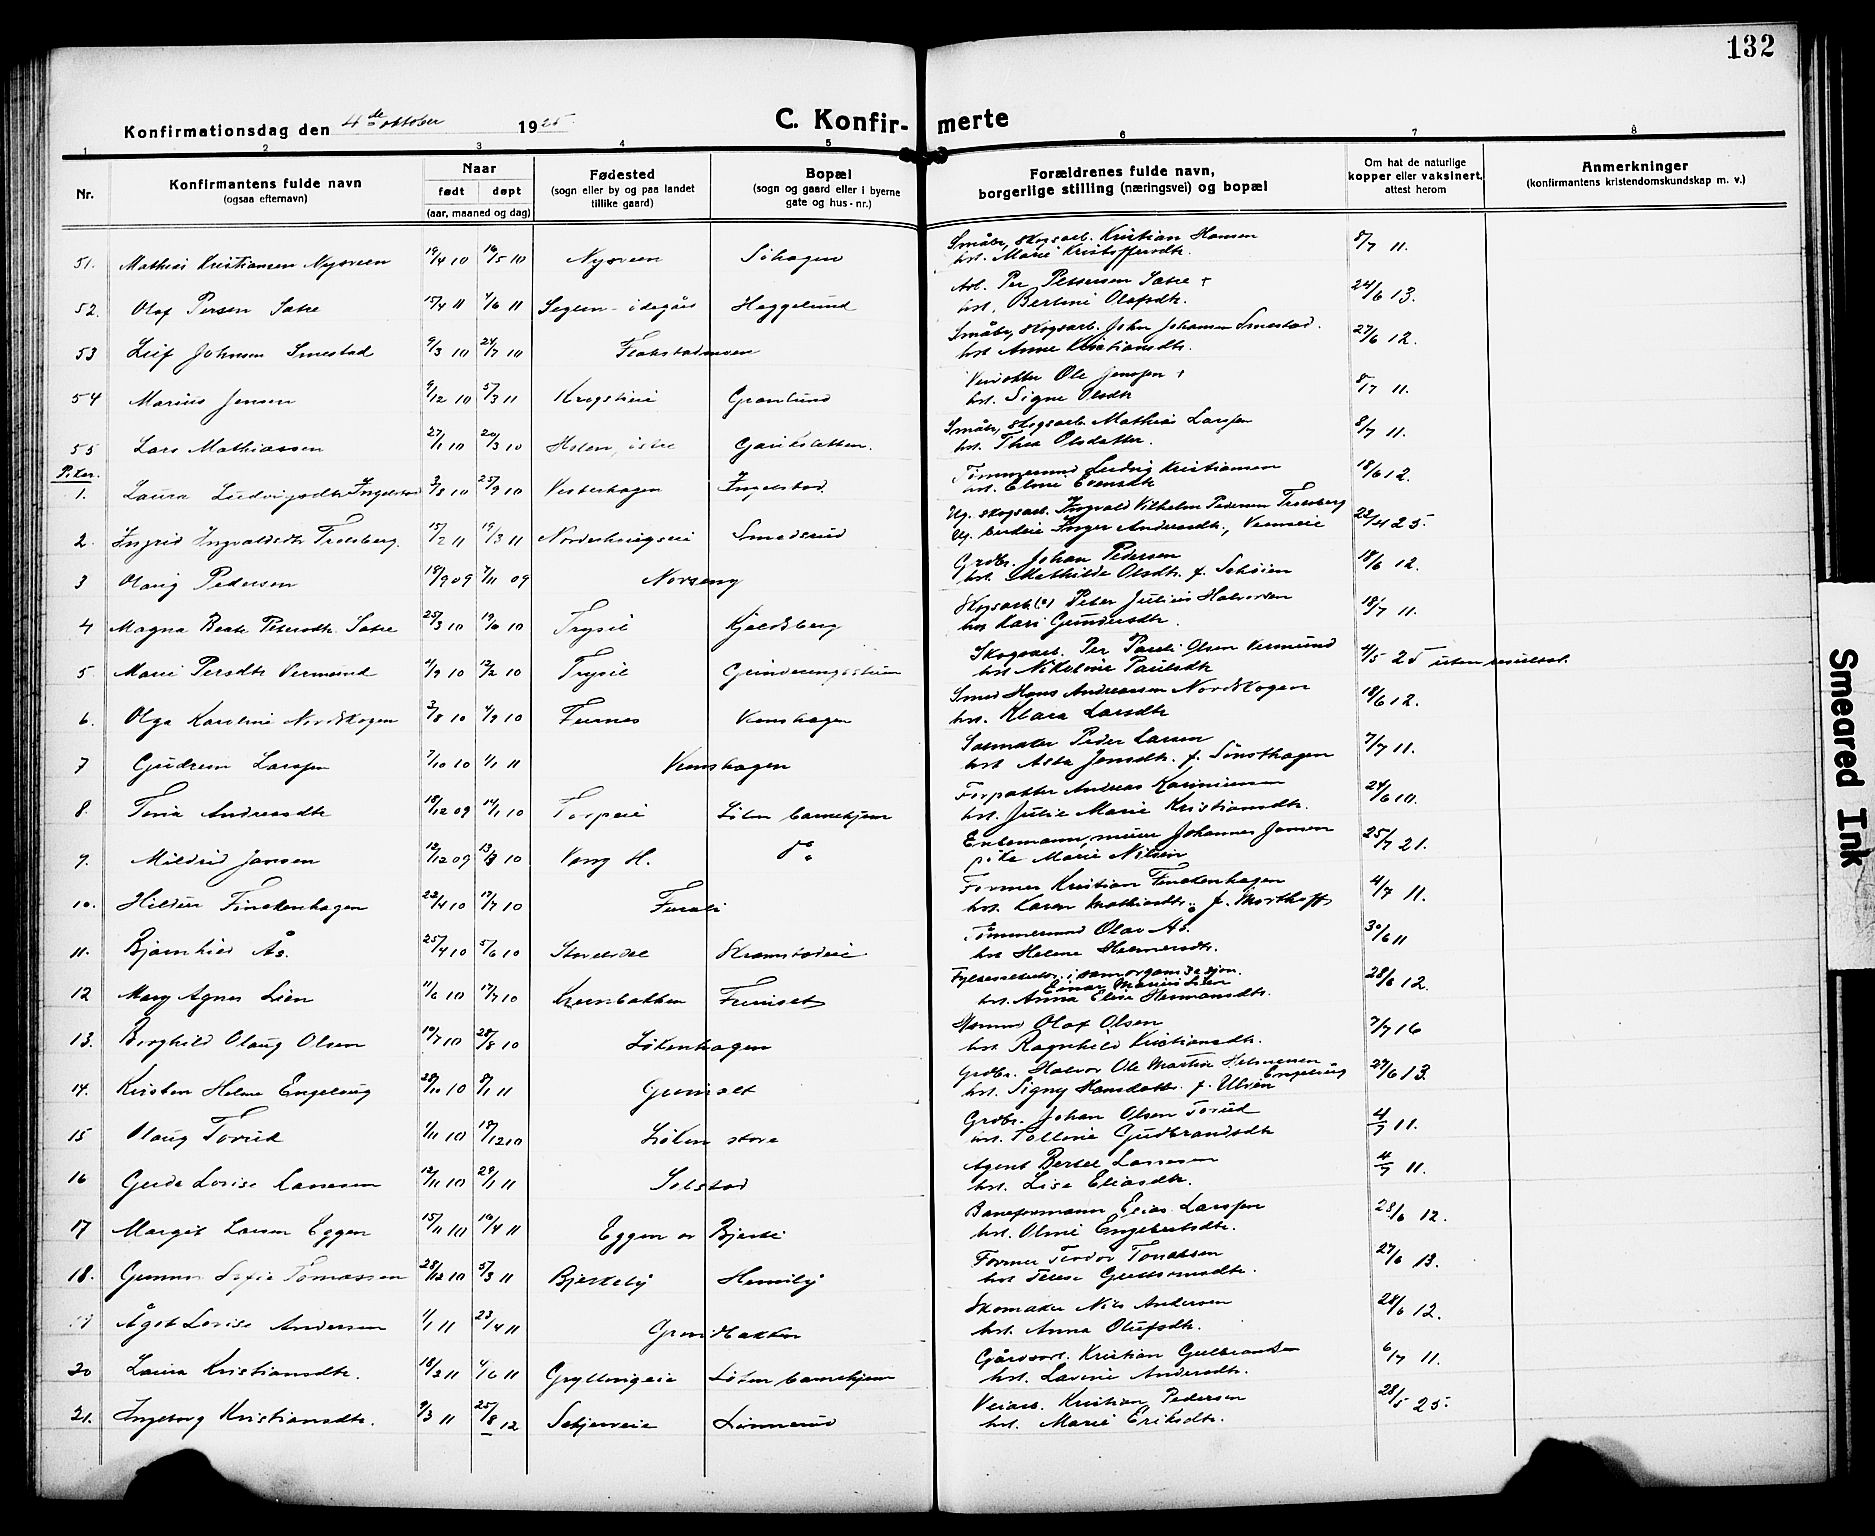 132
Konfirmationsdag den 4de oktober 1925
C. Konfirmerte
1 2 3 4 5 6 7 8
Nr.
Konfirmantens fulde navn
(ogsaa efternavn)
Naar
født døpt
(aar, maaned og dag)
Fødested
(sogn eller by og paa landet
tillike gaard)
Bopæl
(sogn og gaard eller i byerne
gate og hus-nr.)
Forældrenes fulde navn,
borgerlige stilling (næringsvei) og bopæl
Om hat de naturlige
kopper eller vaksinert,
attest herom
Anmerkninger
(konfirmantens kristendomskundskap m. v.)
51. Mathias Kristiansen Nysveen 19/4 10 19/5 10 Nysveen Søhagen Småbr, skogsarb. Kristian Hansen 8/7 11.
hst. Marie Kristoffersdtr.
52. Olaf Persen Sætre 15/4 11 4/6 11 Haggelund Arb. Per Pettersen Sætre + 24/6 13.
hst. Bertine Olafsdtr.
53 Leif Johnsen Smestad 9/3 10 24/7 10 Småbr, skogsarb. John Johansen Smestad. 27/6 12.
hst. Anne Kristiansdtr.
54 Marius Jensen 9/12 10 5/3 11 Grønlund Ole Jenssen + 8/7 11.
hst. Signe Olsdtr
55 Lars Mathiassen 27/1 10 20/3 10 Holen, østre Småbr, skogsarb. Mathias Larssen 8/7 11.
hst. Thea Olsdatter.
Piker.
1. Laura Ludvigsdtr Ingelstad 3/8 10 25/9 10 Vesterhagen Ingelstad. Tømmermand Ludvig Kristiansen 18/6 12.
hst. Eline Evensdtr
2. Ingrid Ingvaldsdtr Frelsberg. 15/2 11 19/3 11 Smedsrud Ug. skogsarb. Ingvald Vilhelm Pedersen 22/4 25.
Ug. Inger Andreasdtr.,
3 Olaug Pedersen 18/9 09 7/11 09 Norseng Grdbr. Johan Pedersen 18/6 12.
hst. Mathilde Olsdtr. f. Schøien
4 Magna Beate Petersdtr Sætre 25/3 10 19/6 10 Trysil Kjeldsberg Skogsarb. (?) Peter Julius Halvorsen 18/7 11.
hst Kari Gundersdtr.
5 Marie Persdtr Vermund 4/9 10 12/2 10 Trysil Skogsarb. Per Pauli Olsen Vermund 4/5 25 uten resultat.
hst Nikoline Paulsdtr
6. Olga Karoline Nordskogen 3/8 10 4/9 10 Furnes Venshagen Smed Hans Andreassen Nordskogen 18/6 12.
hst. Klara Larsdtr
7 Gudrun Larssen 7/10 10 1/1 11 Venshagen Salmaker Peder Larsen 7/7 11.
hst Asta Jensdtr. f. Sønsthagen
8. Tora Andreasdtr 18/12 09 14/1 10 Torpeie Løten barnehjem Forpakter Andreas 24/6 10.
hst. Julie Marie Kristiansdtr.
9. Mildrid Jansen 12/12 09 Vang H. do Enkemann, murer Johannes Jansen 25/7 21.
pike Marie Nilsen
10. Hildur Finckenhagen 22/4 10 17/7 10 Furuli Former Kristian Finckenhagen 4/7 11.
hst. Karen Mathiasdtr. f. Morthoff
11. Bjørnhild Ås. 25/4 10 5/6 10 Skramstadeie Tømmermand Olav Ås. 30/6 11
hst Helene Halvorsdtr.
12 Mary Agnes Lien 11/6 10 17/7 10 Krambakken Fylkessekretær i samorganisasjon. 28/6 12.
Einar Marius Lien
hst. Anna Elise Hermansdtr.
13. Borghild Olaug Olsen 19/7 10 28/8 10 Løkenhagen Olaf Olsen 7/7 16
hst. Ragnhild Kristiansdtr.
14. Kirsten Helene Engelaug 28/11 10 8/1 11 Grdbr. Halvor Ole Martin Halvorsen 27/6 13.
Engelaug
hst. Signy Hansdatter. f. Ulven
15 Olaug Torud 1/11 10 18/12 10 Løken store Grdbr. Johan Olsen Torud 4/7 11.
hst. Pauline Gudbrandsdtr
16 Gerda Lovise Larssen 12/11 10 29/1 11 Solstad Agent Bertel Larssen 4/7 11.
hst. Lise Eliasdtr.
17 Margit Larsen Eggen 15/11 10 16/4 11 Eggen av Bjerke Baneformann Elias Larssen 23/6 12.
hst. Oline Engebretsdtr.
18. Gunvor Sofie Tomassen 28/12 10 5/3 11 Bjerkeby Former Teodor Tomassen 27/6 13.
hst Terese
19 Ågot Lovise Andersen 1/1 11 23/4 11 Skomaker Nils Andersen 28/6 12.
hst. Anna Olufsdtr.
20 Laura Kristiansdtr. 18/2 11 4/6 11 Gryllingeie Løten barnehjem Gårdsarb. Kristian Gulbrandsen 6/7 11.
hst. Lavine Andersdtr.
21. Ingeborg Kristiansdtr. 9/3 11 25/8 12 Lønnerud Veiarb. Kristian Pedersen 28/5 25.
hst. Marie Eriksdtr.
Smeared Ink